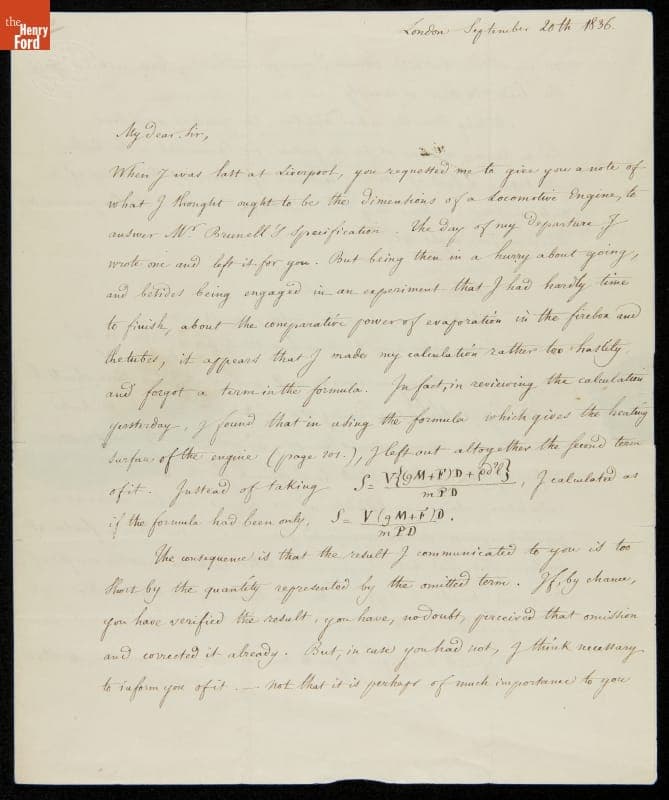 the
Henry
Ford
London September 20th 1836.
My dear Sir,
When I was last at Liverpool, you requested me to give you a note of
what I thought ought to be the dimentions of a Locomotive Engine, to
answer Mr Brunell's specification. The day of my departure I
wrote one and left it for you. But being then in a hurry about going,
and besides being engaged in an experiment that I had hardly time
to finish, about the comparative power of evaporation in the firebox and
the tubes, it appears that I made my calculation rather too hastily
and forgot a term in the formula. In fact, in reviewing the calculation
yesterday, I found that in using the formula which gives the heating
surface of the engine (page 201.), I left out altogether the second term
of it. Instead of taking S = V{(gM+F)D + pd²l} / mPD, I calculated as
if the formula had been only, S = V(gM+F)D / mPD.
The consequence is that the result I communicated to you is too
short by the quantity represented by the omitted term. If, by chance,
you have verified the result, you have, no doubt, perceived that omission
and corrected it already. But, in case you had not, I think necessary
to inform you of it. — not that it is perhaps of much importance to you